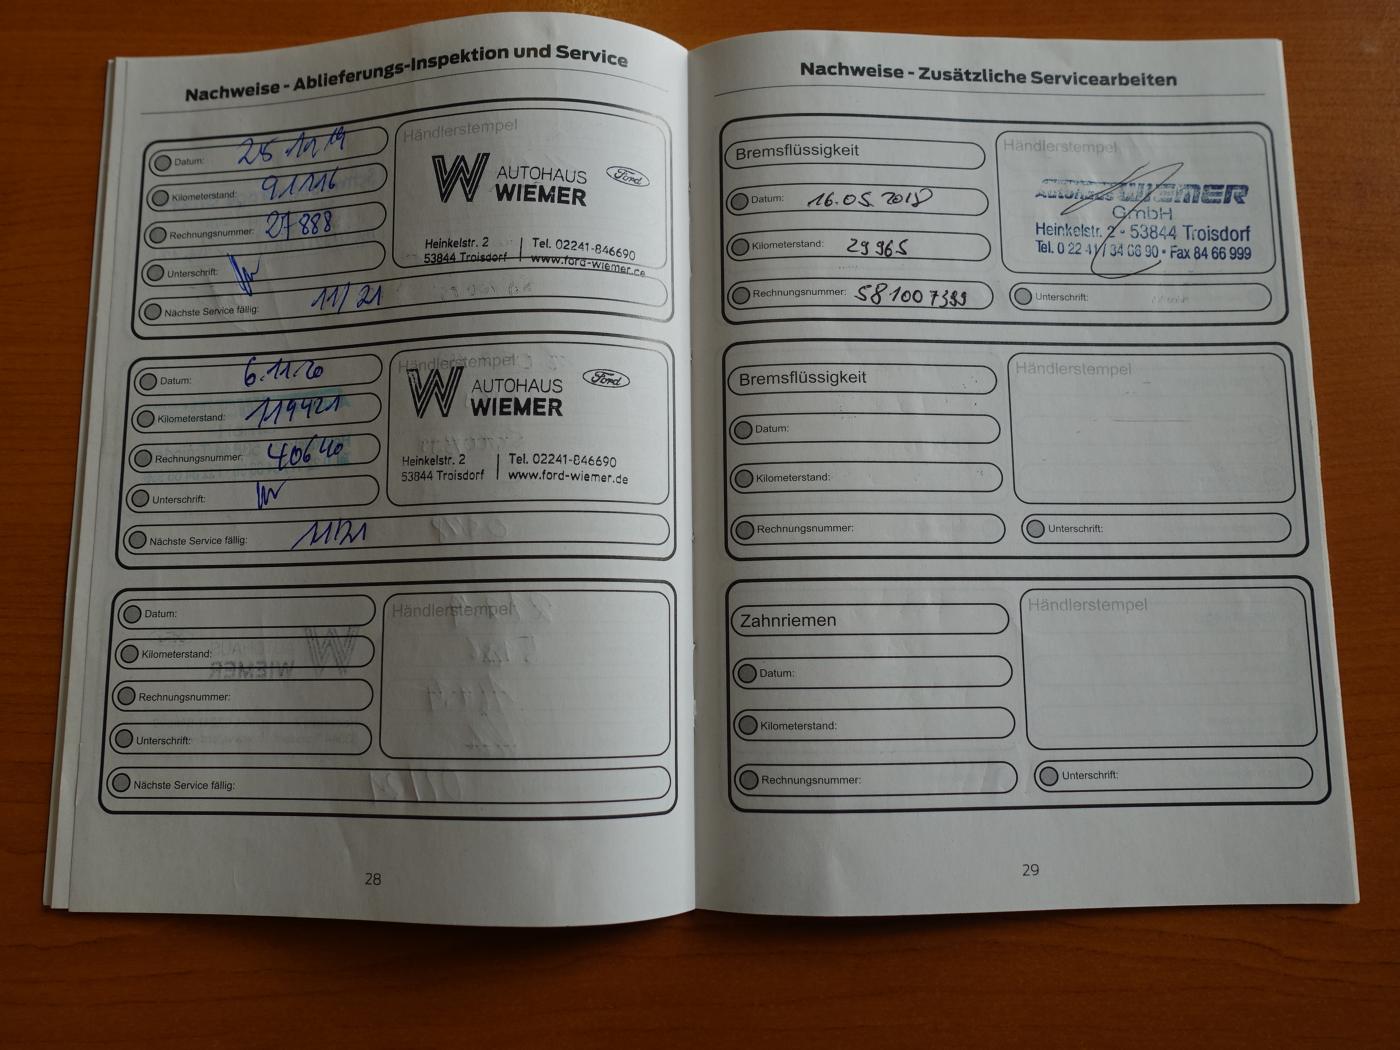 Nachweise - Ablieferungs-Inspektion und Service
Datum: 25.11.19
Kilometerstand: 91116
Rechnungsnummer: 27888
Unterschrift:
Nächste Service fällig: 11/21
Händlerstempel
W AUTOHAUS WIEMER Ford
Heinkelstr. 2 | Tel. 02241-846690
53844 Troisdorf | www.ford-wiemer.de
Datum: 6.11.20
Kilometerstand: 119421
Rechnungsnummer: 40640
Unterschrift:
Nächste Service fällig: 11/21
Händlerstempel
W AUTOHAUS WIEMER Ford
Heinkelstr. 2 | Tel. 02241-846690
53844 Troisdorf | www.ford-wiemer.de
Datum:
Kilometerstand:
Rechnungsnummer:
Unterschrift:
Nächste Service fällig:
Händlerstempel
28
Nachweise - Zusätzliche Servicearbeiten
Bremsflüssigkeit
Datum: 16.05.2018
Kilometerstand: 29965
Rechnungsnummer: 581007399
Händlerstempel
Autohaus WIEMER
GmbH
Heinkelstr. 2 - 53844 Troisdorf
Tel. 0 22 41 / 84 66 90 - Fax 84 66 999
Unterschrift:
Bremsflüssigkeit
Datum:
Kilometerstand:
Rechnungsnummer:
Händlerstempel
Unterschrift:
Zahnriemen
Datum:
Kilometerstand:
Rechnungsnummer:
Händlerstempel
Unterschrift:
29